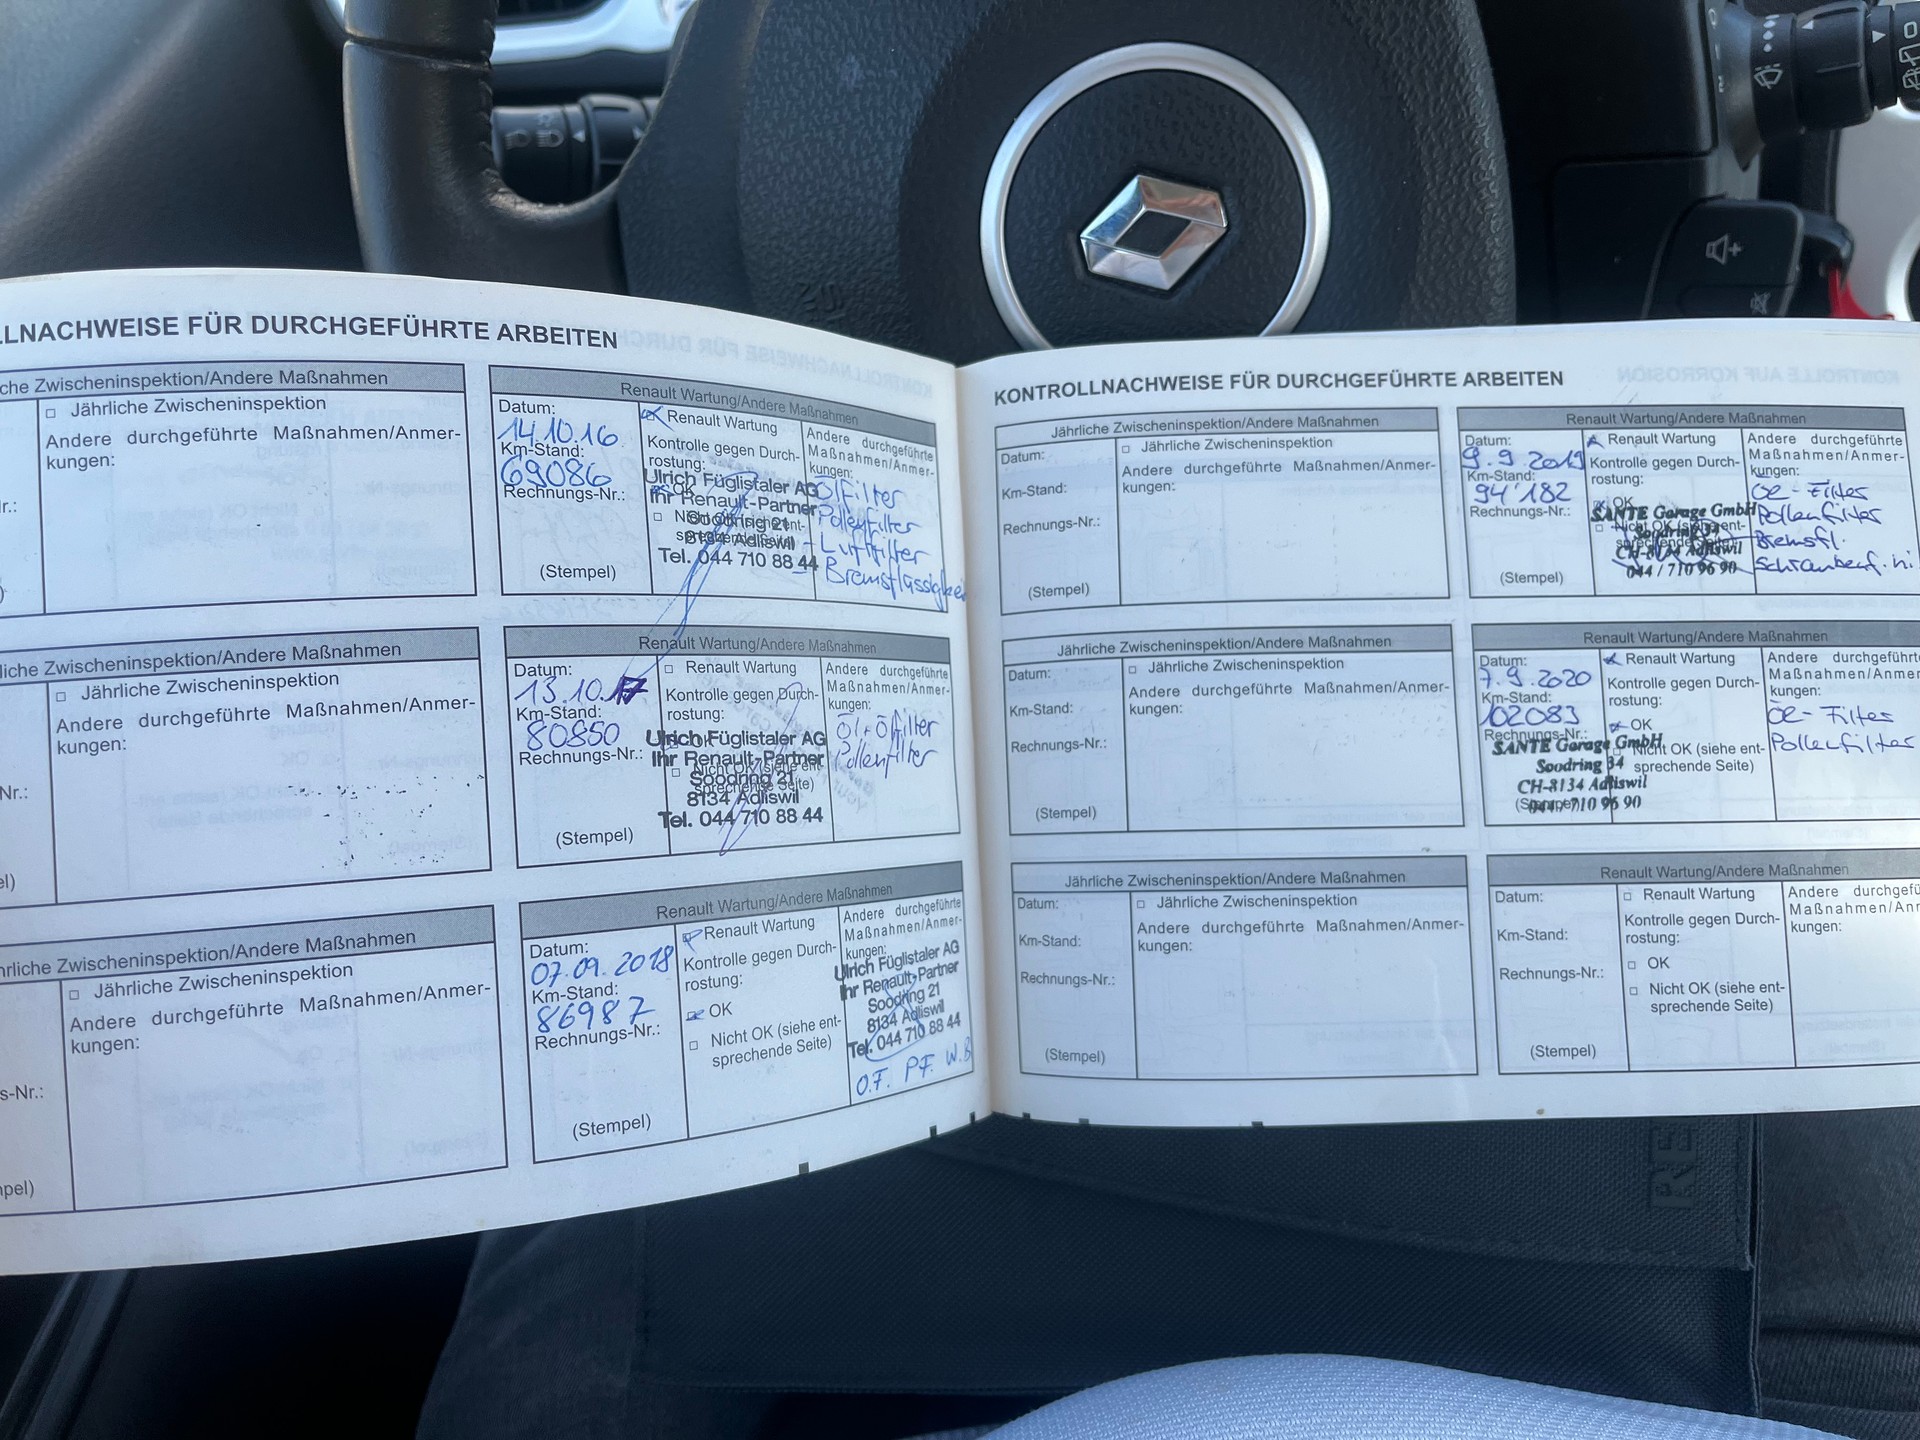 LLNACHWEISE FÜR DURCHGEFÜHRTE ARBEITEN
che Zwischeninspektion/Andere Maßnahmen
Jährliche Zwischeninspektion
Andere durchgeführte Maßnahmen/Anmer-
kungen:
r.:
Renault Wartung/Andere Maßnahmen
Datum:
14.10.16
Km-Stand:
69086
Rechnungs-Nr.:
(Stempel)
Renault Wartung
Kontrolle gegen Durch-
rostung:
OK
Ulrich Füglistaler AG
Ihr Renault-Partner
Soodring 21
8134 Adliswil
Tel. 044 710 88 44
Andere durchgeführte
Maßnahmen/Anmer-
kungen:
Ölfilter
Pollenfilter
Luftfilter
Bremsflüssigkei
liche Zwischeninspektion/Andere Maßnahmen
Jährliche Zwischeninspektion
Andere durchgeführte Maßnahmen/Anmer-
kungen:
Nr.:
el)
Renault Wartung/Andere Maßnahmen
Datum:
13.10.17
Km-Stand:
80850
Rechnungs-Nr.:
(Stempel)
Renault Wartung
Kontrolle gegen Durch-
rostung:
Nicht OK (siehe ent-
sprechende Seite)
Ulrich Füglistaler AG
Ihr Renault-Partner
Soodring 21
8134 Adliswil
Tel. 044 710 88 44
Andere durchgeführte
Maßnahmen/Anmer-
kungen:
Pollenfilter
hrliche Zwischeninspektion/Andere Maßnahmen
Jährliche Zwischeninspektion
Andere durchgeführte Maßnahmen/Anmer-
kungen:
s-Nr.:
pel)
Renault Wartung/Andere Maßnahmen
Datum:
07.09.2018
Km-Stand:
86987
Rechnungs-Nr.:
(Stempel)
Renault Wartung
Kontrolle gegen Durch-
rostung:
OK
Nicht OK (siehe ent-
sprechende Seite)
Andere durchgeführte
Maßnahmen/Anmer-
kungen:
Ulrich Füglistaler AG
Ihr Renault-Partner
Soodring 21
8134 Adliswil
Tel. 044 710 88 44
O.F. P.F. W.B
KONTROLLNACHWEISE FÜR DURCHGEFÜHRTE ARBEITEN
Jährliche Zwischeninspektion/Andere Maßnahmen
Datum:
Km-Stand:
Rechnungs-Nr.:
(Stempel)
Jährliche Zwischeninspektion
Andere durchgeführte Maßnahmen/Anmer-
kungen:
Renault Wartung/Andere Maßnahmen
Datum:
9.9.2019
Km-Stand:
94'182
Rechnungs-Nr.:
(Stempel)
Renault Wartung
Kontrolle gegen Durch-
rostung:
OK
SANTE Garage GmbH
Soodring 34
CH-8134 Adliswil
044 / 710 96 90
Andere durchgeführte
Maßnahmen/Anmer-
kungen:
Öl-Filter
Pollenfilter
Bremsfl.
Jährliche Zwischeninspektion/Andere Maßnahmen
Datum:
Km-Stand:
Rechnungs-Nr.:
(Stempel)
Jährliche Zwischeninspektion
Andere durchgeführte Maßnahmen/Anmer-
kungen:
Renault Wartung/Andere Maßnahmen
Datum:
7.9.2020
Km-Stand:
102083
Rechnungs-Nr.:
Renault Wartung
Kontrolle gegen Durch-
rostung:
OK
Nicht OK (siehe ent-
sprechende Seite)
SANTE Garage GmbH
Soodring 34
CH-8134 Adliswil
044 / 710 96 90
Andere durchgeführte
Maßnahmen/Anmer
kungen:
Öl-Filter
Pollenfilter
Jährliche Zwischeninspektion/Andere Maßnahmen
Datum:
Km-Stand:
Rechnungs-Nr.:
(Stempel)
Jährliche Zwischeninspektion
Andere durchgeführte Maßnahmen/Anmer-
kungen:
Renault Wartung/Andere Maßnahmen
Datum:
Km-Stand:
Rechnungs-Nr.:
(Stempel)
Renault Wartung
Kontrolle gegen Durch-
rostung:
OK
Nicht OK (siehe ent-
sprechende Seite)
Andere durchgefü
Maßnahmen/Anr
kungen:
RE